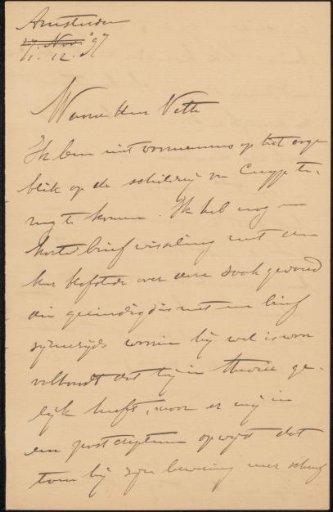 Amsterdam
17 Nov '97
17.12.
Waarde Heer Veth
Ik ben niet voornemens op het oogen
blik op de schilderij van Cuyp te-
rug te komen. Ik heb nog een
korte briefwisseling met den
heer Hofstede over deze zaak gevoerd
die geëindigd is met een brief
zijnerzijds waarin hij wel is waar
volhoudt dat hij in theorie ge-
lijk heeft, maar er mij in
een postscriptum op wijst dat
toen hij zijn bewering neer schreef